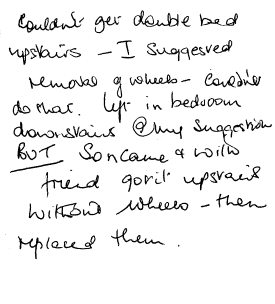 Couldn't get double bed
upstairs - I suggested
removal of wheels - couldn't
do that. left in bedroom
downstairs @ my suggestion
BUT Son came & with
friend got it upstairs
without wheels - then
replaced them.